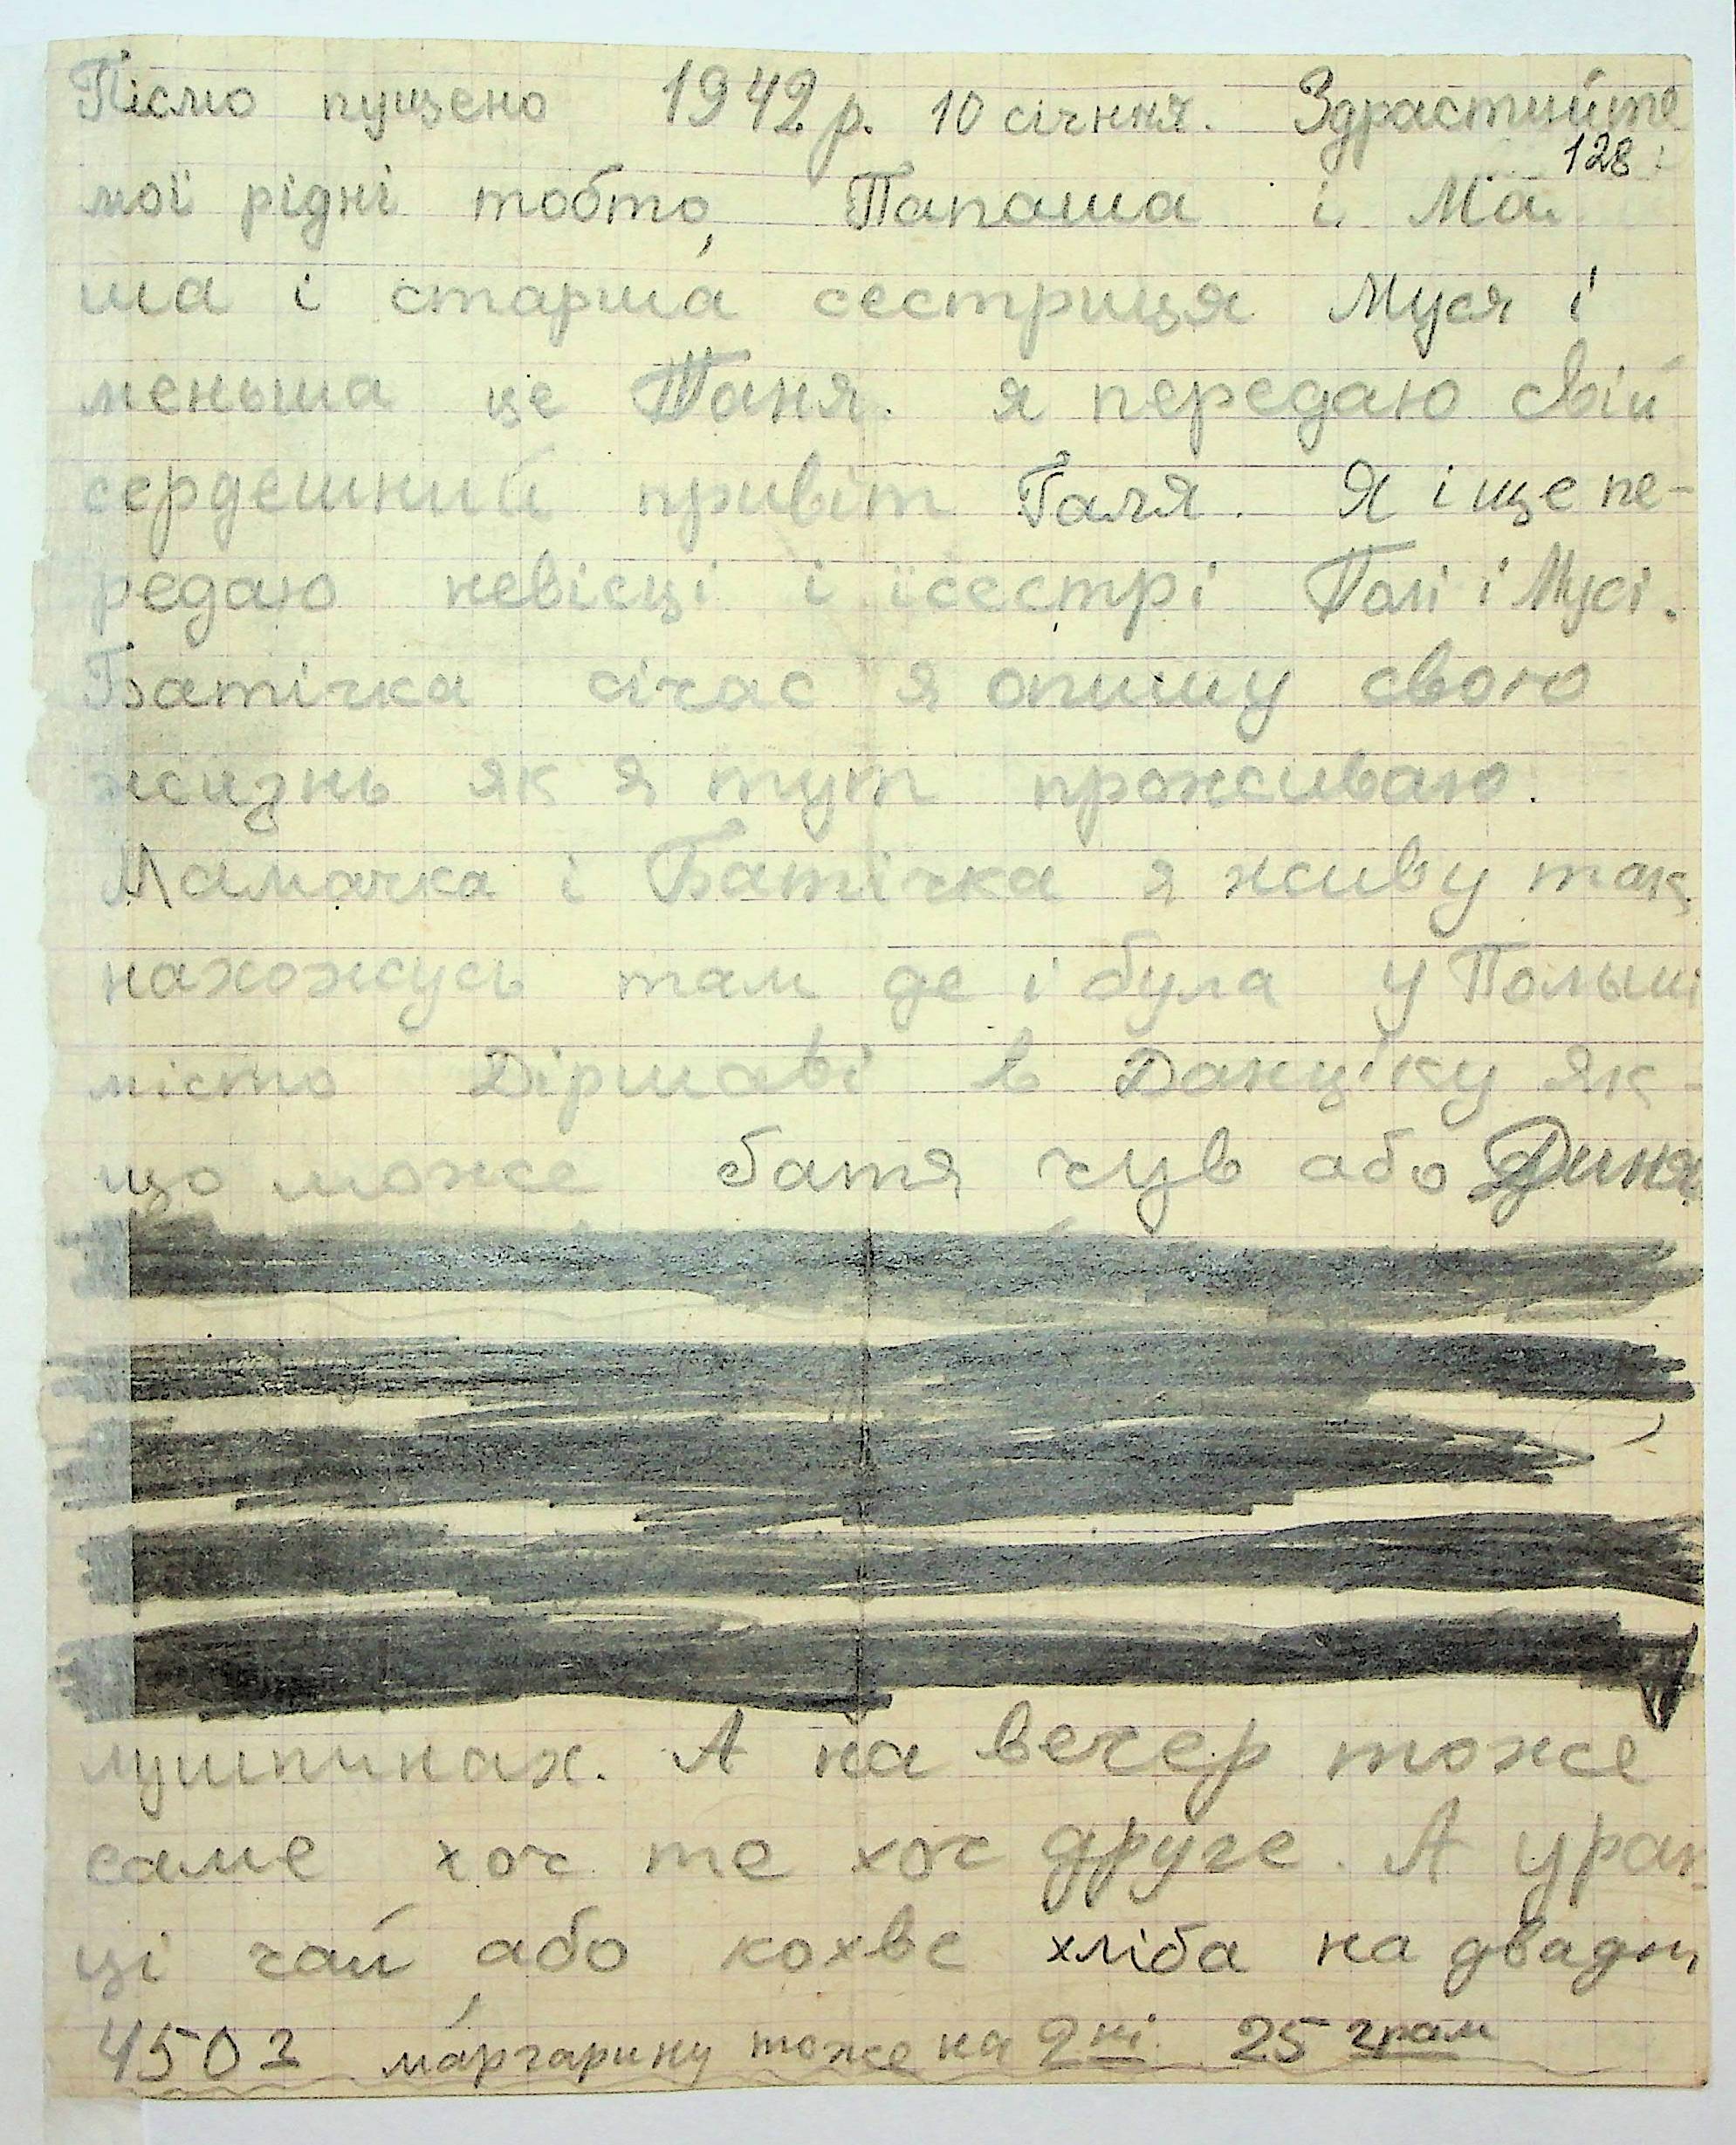 Пісмо пущено 1942 р. 10 січння. Здраствуйте
128
мої рідні тобто, Папаша і Ма
ша і старша сестриця Муся і
меньша це Таня. я передаю свій
сердешний привіт Галя. Я і іще пе-
редаю невісці і їсестрі Галі і Мусі.
Батічка січас я опишу свою
жизнь як я тут проживаю.
Мамачка і Батічка я живу так
нахожусь там де і була у Польші
місто Діршаві в Данціку як-
що може батя чув або Диня
лушпинах. А на вечер тоже
саме хоч те хоч друге. А уран
ці чай або кохве хліба на двадні
450 г маргарину тоже на 2 ні 25 грам